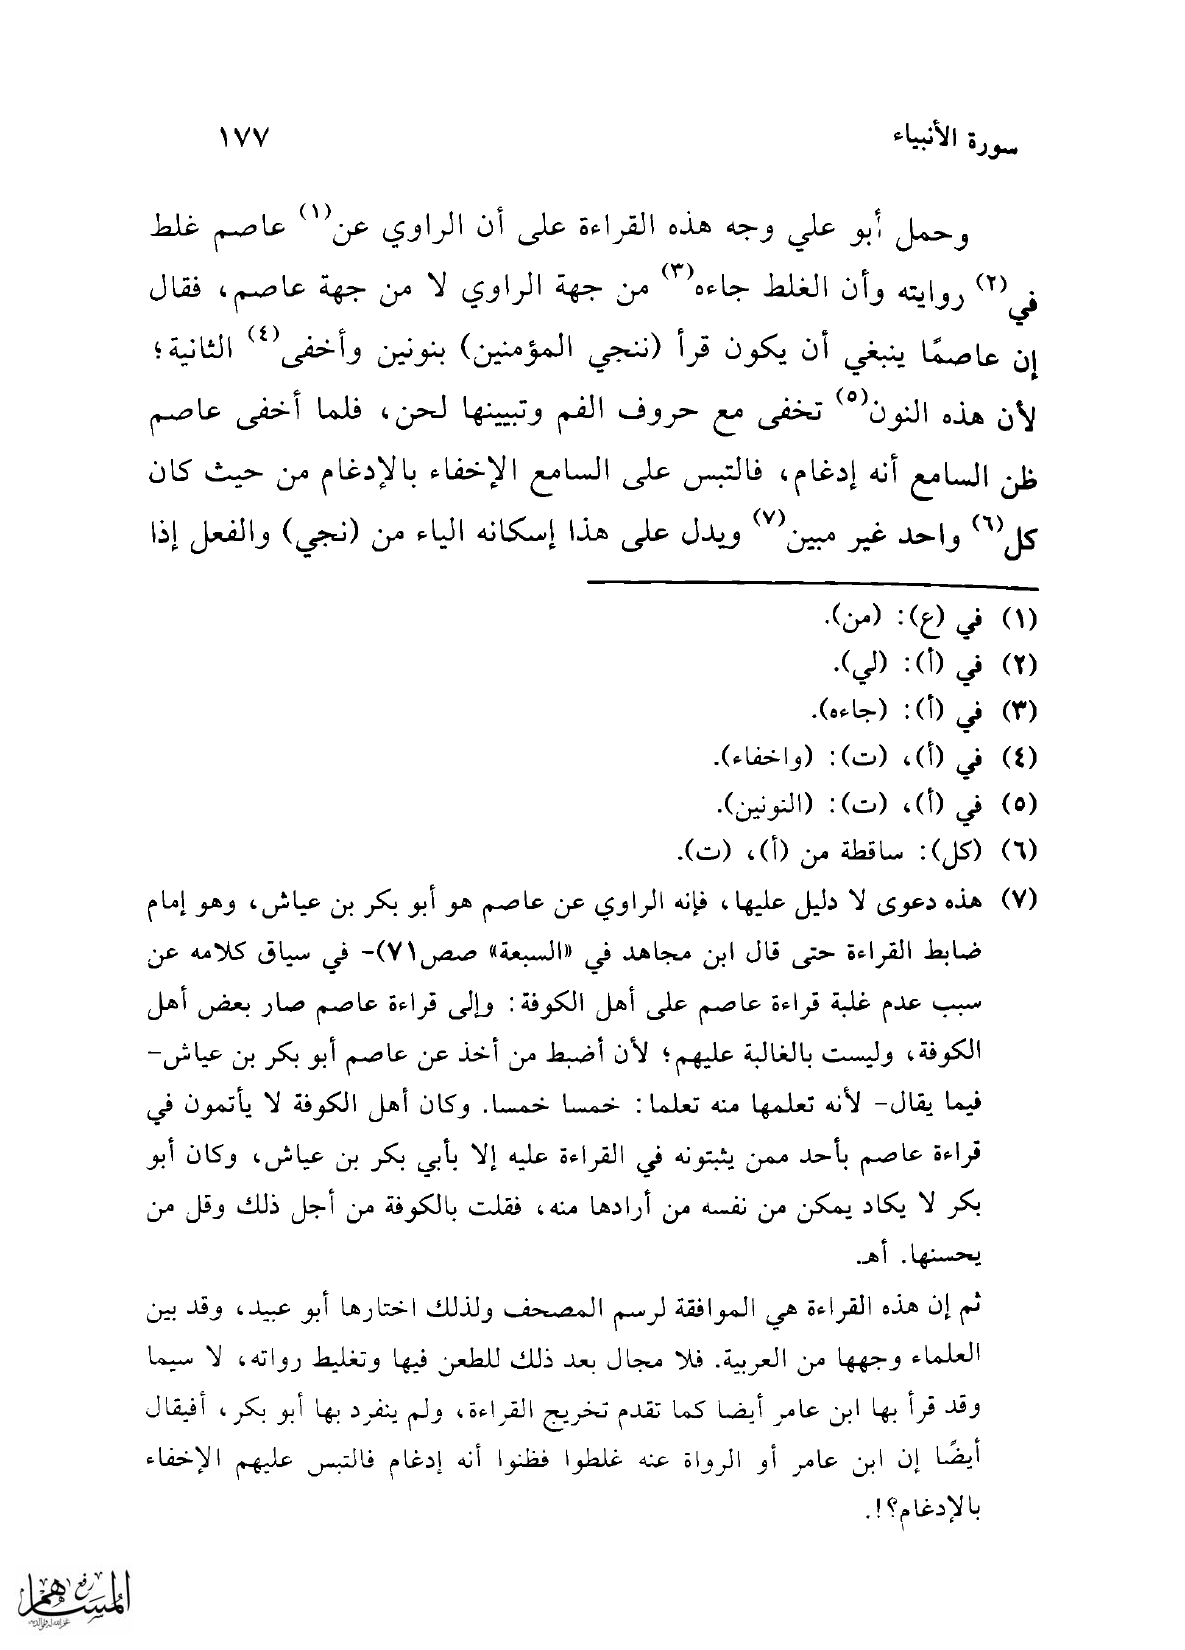 سورة الأنبياء ١٧٧
وحمل أبو علي وجه هذه القراءة على أن الراوي عن(١) عاصم غلط
في(٢) روايته وأن الغلط جاءه(٣) من جهة الراوي لا من جهة عاصم، فقال
إن عاصمًا ينبغي أن يكون قرأ (ننجي المؤمنين) بنونين وأخفى(٤) الثانية؛
لأن هذه النون(٥) تخفى مع حروف الفم وتبيينها لحن، فلما أخفى عاصم
ظن السامع أنه إدغام، فالتبس على السامع الإخفاء بالإدغام من حيث كان
كل(٦) واحد غير مبين(٧) ويدل على هذا إسكانه الياء من (نجي) والفعل إذا
(١) في (ع): (من).
(٢) في (أ): (لي).
(٣) في (أ): (جاءه).
(٤) في (أ)، (ت): (واخفاء).
(٥) في (أ)، (ت): (النونين).
(٦) (كل): ساقطة من (أ)، (ت).
(٧) هذه دعوى لا دليل عليها، فإنه الراوي عن عاصم هو أبو بكر بن عياش، وهو إمام
ضابط القراءة حتى قال ابن مجاهد في «السبعة» صص٧١)- في سياق كلامه عن
سبب عدم غلبة قراءة عاصم على أهل الكوفة: وإلى قراءة عاصم صار بعض أهل
الكوفة، وليست بالغالبة عليهم؛ لأن أضبط من أخذ عن عاصم أبو بكر بن عياش-
فيما يقال- لأنه تعلمها منه تعلما: خمسا خمسا. وكان أهل الكوفة لا يأتمون في
قراءة عاصم بأحد ممن يثبتونه في القراءة عليه إلا بأبي بكر بن عياش، وكان أبو
بكر لا يكاد يمكن من نفسه من أرادها منه، فقلت بالكوفة من أجل ذلك وقل من
يحسنها. أهـ.
ثم إن هذه القراءة هي الموافقة لرسم المصحف ولذلك اختارها أبو عبيد، وقد بين
العلماء وجهها من العربية. فلا مجال بعد ذلك للطعن فيها وتغليط رواته، لا سيما
وقد قرأ بها ابن عامر أيضا كما تقدم تخريج القراءة، ولم ينفرد بها أبو بكر، أفيقال
أيضًا إن ابن عامر أو الرواة عنه غلطوا فظنوا أنه إدغام فالتبس عليهم الإخفاء
بالإدغام؟!.